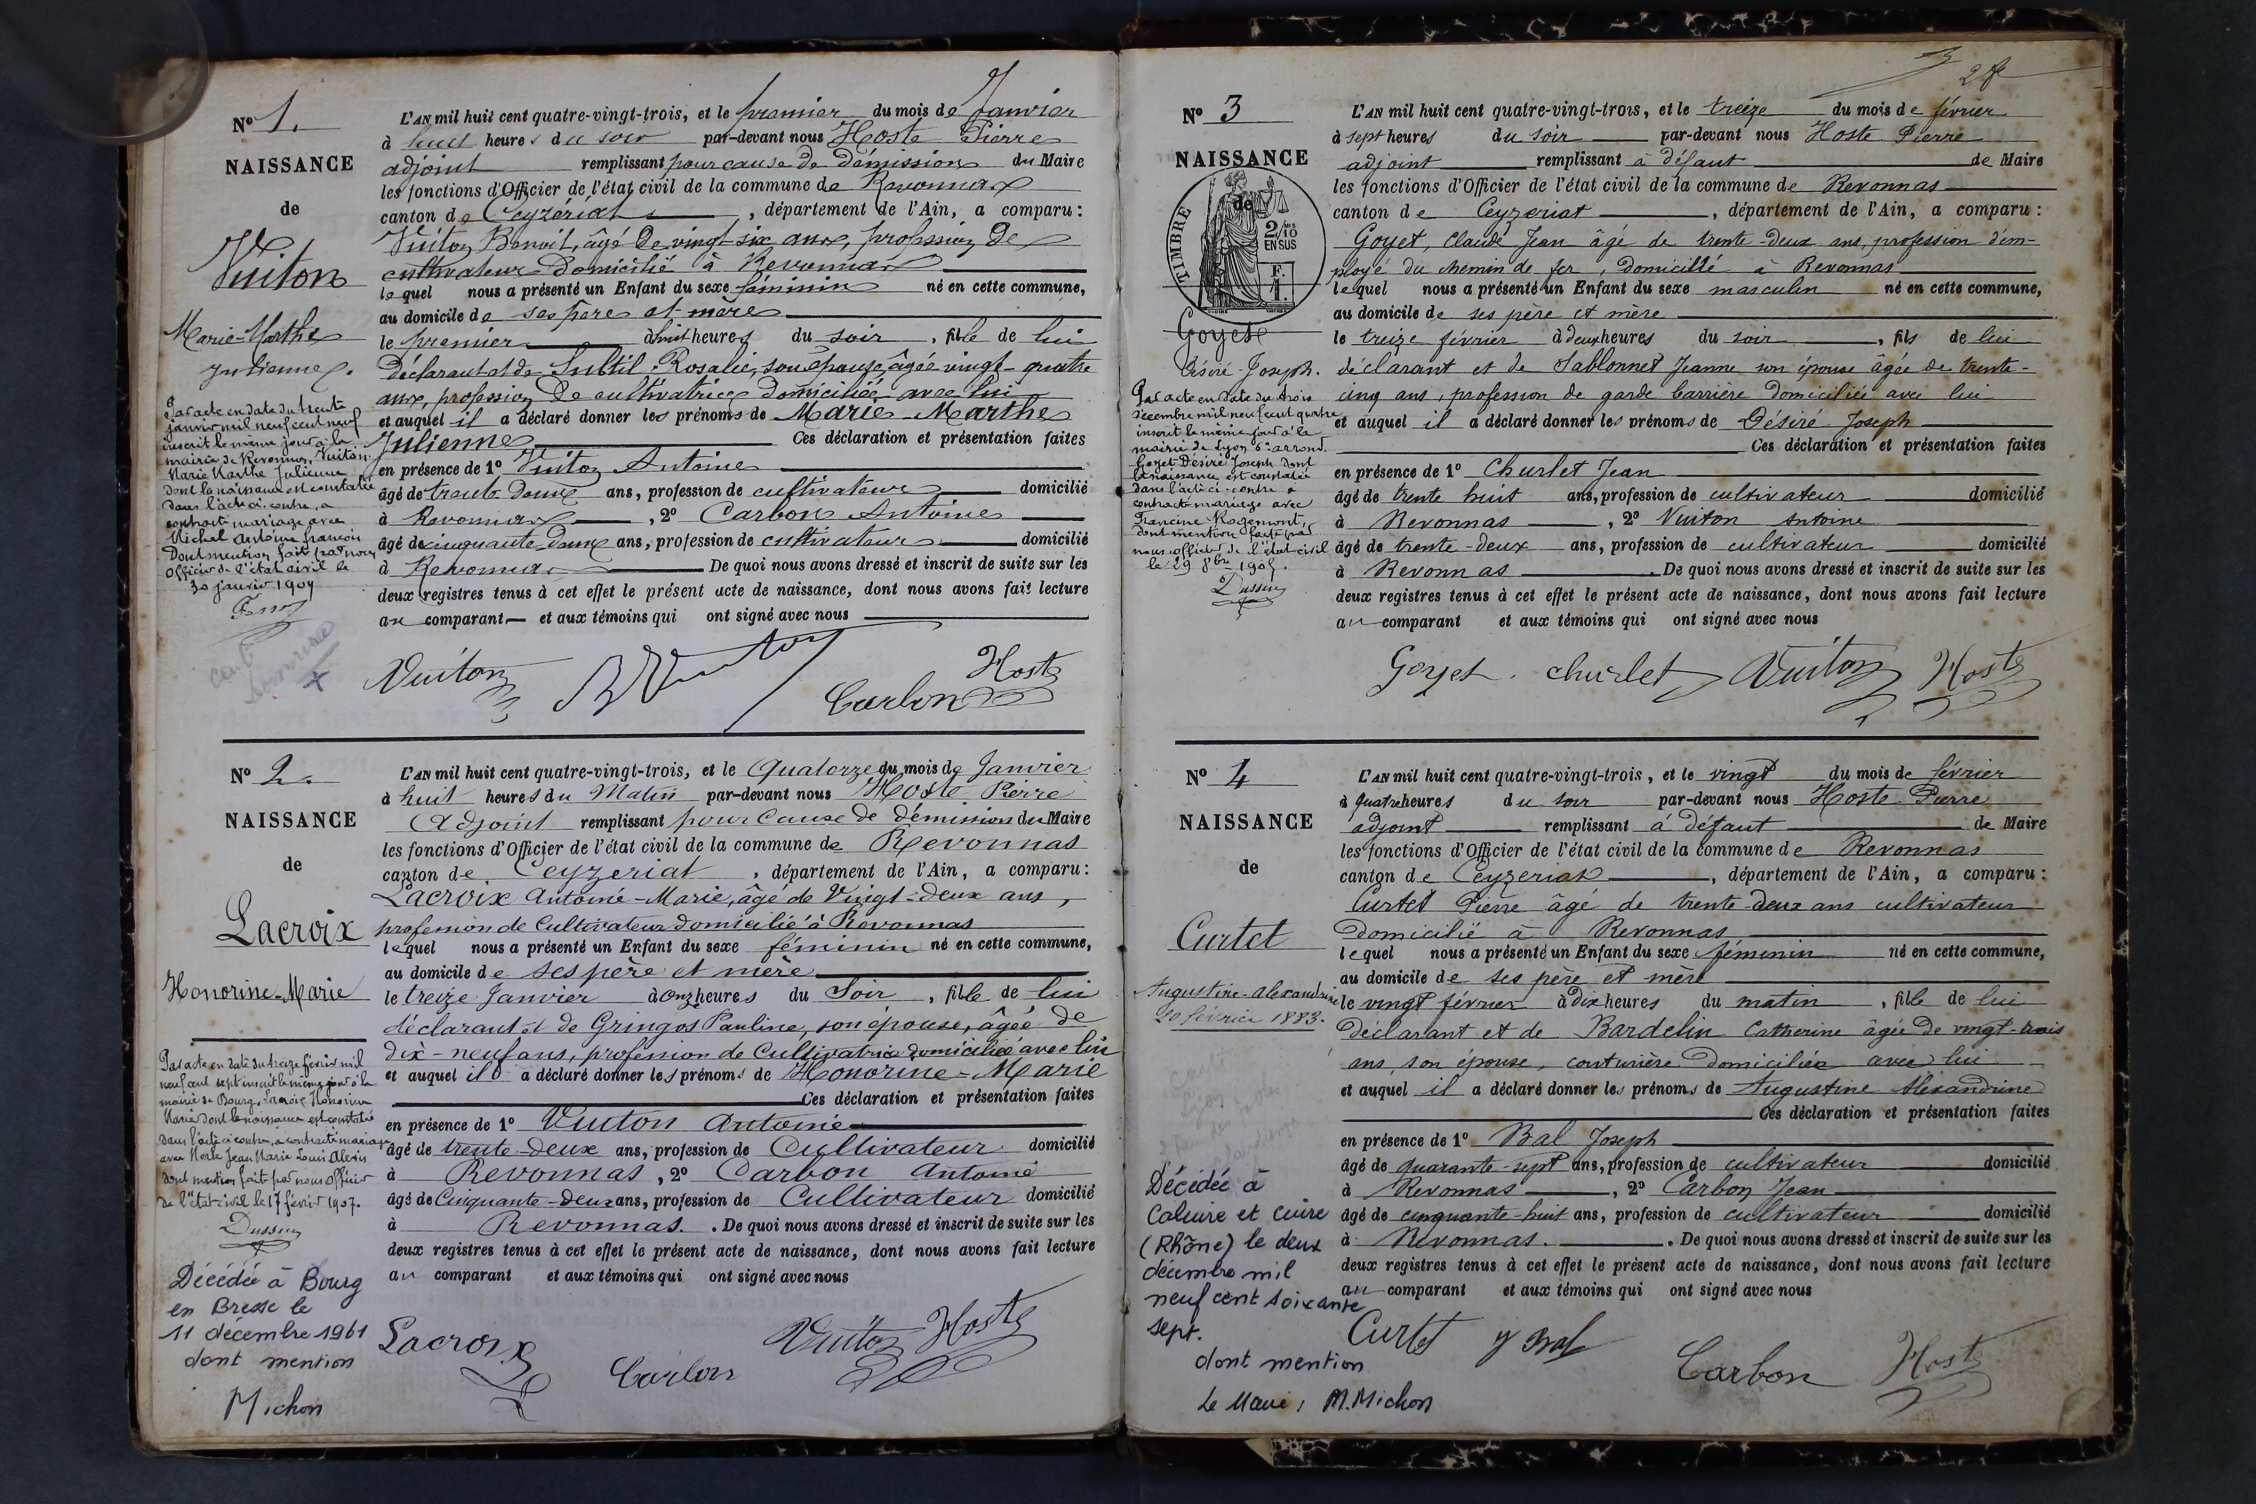 N° 1.
NAISSANCE
de
Vuiton
Marie-Marthe
Julienne.
Par acte en date du trente
janvier mil neuf cent neuf
inscrit le même jour à la
mairie de Revonnas, Vuiton
Marie Marthe Julienne
dont la naissance est constatée
dans l'acte ci-contre, a
contracté mariage avec
Michel Antoine françois
Dont mention fait par nous
Officier de l'état civil le
30 janvier 1909
L'AN mil huit cent quatre-vingt-trois, et le premier du mois de Janvier
à huit heures du soir par-devant nous Hoste Pierre
adjoint remplissant pour cause de démission du Maire
les fonctions d'Officier de l'état civil de la commune de Revonnas
canton de Ceyzériat, département de l'Ain, a comparu :
Vuiton Benoit, âgé de vingt-six ans, profession de
cultivateur domicilié à Revonnas
lequel nous a présenté un Enfant du sexe féminin né en cette commune,
au domicile de ses père et mère
le premier à huit heures du soir, fille de lui
Déclarant et de Subtil Rosalie, son épouse âgée vingt-quatre
ans, profession de cultivatrice domiciliée avec lui
et auquel il a déclaré donner les prénoms de Marie-Marthe
Julienne Ces déclaration et présentation faites
en présence de 1° Vuiton Antoine
âgé de trente deux ans, profession de cultivateur domicilié
à Revonnas, 2° Carbon Antoine
âgé de cinquante deux ans, profession de cultivateur domicilié
à Revonnas De quoi nous avons dressé et inscrit de suite sur les
deux registres tenus à cet effet le présent acte de naissance, dont nous avons fait lecture
au comparant et aux témoins qui ont signé avec nous
Vuiton B Vuiton Carbon Hoste
N° 2.
NAISSANCE
de
Lacroix
Honorine-Marie
Par acte en date du treize février mil
neuf cent sept inscrit le même jour à la
mairie de Bourg, Lacroix Honorine
Marie dont la naissance est constatée
dans l'acte ci contre, a contracté mariage
avec Merle Jean Marie Louis Alexis
dont mention fait par nous Officier
de l'état-civil le 17 février 1907.
Décédée à Bourg
en Bresse le
11 décembre 1961
dont mention
Michon
L'AN mil huit cent quatre-vingt-trois, et le Quatorze du mois de Janvier
à huit heures du Matin par-devant nous Hoste Pierre
Adjoint remplissant pour Cause de démission du Maire
les fonctions d'Officier de l'état civil de la commune de Revonnas
canton de Ceyzeriat, département de l'Ain, a comparu :
Lacroix Antoine-Marie, âgé de Vingt-deux ans,
profession de Cultivateur domicilié à Revonnas
lequel nous a présenté un Enfant du sexe féminin né en cette commune,
au domicile de ses père et mère
le treize Janvier à onze heures du Soir, fille de lui
déclarant et de Gringos Pauline, son épouse, âgée de
dix-neuf ans, profession de Cultivatrice domiciliée avec lui
et auquel il a déclaré donner les prénoms de Honorine-Marie
Ces déclaration et présentation faites
en présence de 1° Vuiton Antoine
âgé de trente-deux ans, profession de Cultivateur domicilié
à Revonnas, 2° Carbon Antoine
âgé de Cinquante-deux ans, profession de Cultivateur domicilié
à Revonnas. De quoi nous avons dressé et inscrit de suite sur les
deux registres tenus à cet effet le présent acte de naissance, dont nous avons fait lecture
au comparant et aux témoins qui ont signé avec nous
Lacroix Carbon Vuiton Hoste
N° 3
NAISSANCE
de
TIMBRE
2/10
EN SUS
F.
1.
Goyet
Désiré-Joseph.
Par acte en date du trois
décembre mil neuf cent quatre
inscrit le même jour à la
mairie de Lyon 6e arrond.
Goyet Désiré Joseph dont
la naissance est constatée
dans l'acte ci-contre a
contracté mariage avec
Francine Rogemont,
dont mention faite par
nous officier de l'état civil
le 29 8bre 1905.
L'AN mil huit cent quatre-vingt-trois, et le treize du mois de février
à sept heures du soir par-devant nous Hoste Pierre
adjoint remplissant à défaut de Maire
les fonctions d'Officier de l'état civil de la commune de Revonnas
canton de Ceyzeriat, département de l'Ain, a comparu :
Goyet, Claude Jean âgé de trente-deux ans, profession d'em-
ployé du chemin de fer, domicilié à Revonnas
lequel nous a présenté un Enfant du sexe masculin né en cette commune,
au domicile de ses père et mère
le treize février à deux heures du soir, fils de lui
déclarant et de Sablonnet Jeanne son épouse âgée de trente-
cinq ans, profession de garde barrière domiciliée avec lui
et auquel il a déclaré donner les prénoms de Désiré Joseph
Ces déclaration et présentation faites
en présence de 1° Churlet Jean
âgé de trente huit ans, profession de cultivateur domicilié
à Revonnas, 2° Vuiton Antoine
âgé de trente-deux ans, profession de cultivateur domicilié
à Revonnas. De quoi nous avons dressé et inscrit de suite sur les
deux registres tenus à cet effet le présent acte de naissance, dont nous avons fait lecture
au comparant et aux témoins qui ont signé avec nous
Goyet. Churlet Vuiton Hoste
N° 4
NAISSANCE
de
Curtet
Augustine-Alexandrine
20 février 1883.
Décédée à
Caluire et cuire
(Rhône) le deux
décembre mil
neuf cent soixante
sept.
dont mention
Le Maire, M. Michon
L'AN mil huit cent quatre-vingt-trois, et le vingt du mois de février
à quatre heures du soir par-devant nous Hoste Pierre
adjoint remplissant à défaut de Maire
les fonctions d'Officier de l'état civil de la commune de Revonnas
canton de Ceyzeriat, département de l'Ain, a comparu :
Curtet Pierre âgé de trente-deux ans cultivateur
domicilié à Revonnas
lequel nous a présenté un Enfant du sexe féminin né en cette commune,
au domicile de ses père et mère
le vingt février à dix heures du matin, fille de lui
déclarant et de Bardelin Catherine âgée de vingt-trois
ans, son épouse, couturière domiciliée avec lui
et auquel il a déclaré donner les prénoms de Augustine Alexandrine
Ces déclaration et présentation faites
en présence de 1° Bal Joseph
âgé de quarante-sept ans, profession de cultivateur domicilié
à Revonnas, 2° Carbon Jean
âgé de cinquante-huit ans, profession de cultivateur domicilié
à Revonnas. De quoi nous avons dressé et inscrit de suite sur les
deux registres tenus à cet effet le présent acte de naissance, dont nous avons fait lecture
au comparant et aux témoins qui ont signé avec nous
Curtet J Bal Carbon Hoste